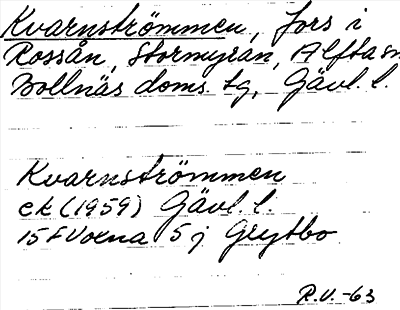 Kvarnströmmen, fors i
Rossån, Stormyran, Alfta sn
Bollnäs doms. tg, Gävl. l.
Kvarnströmmen
ek (1959) Gävl. l.
15F Voxna 5j Grytbo
R.V. -63